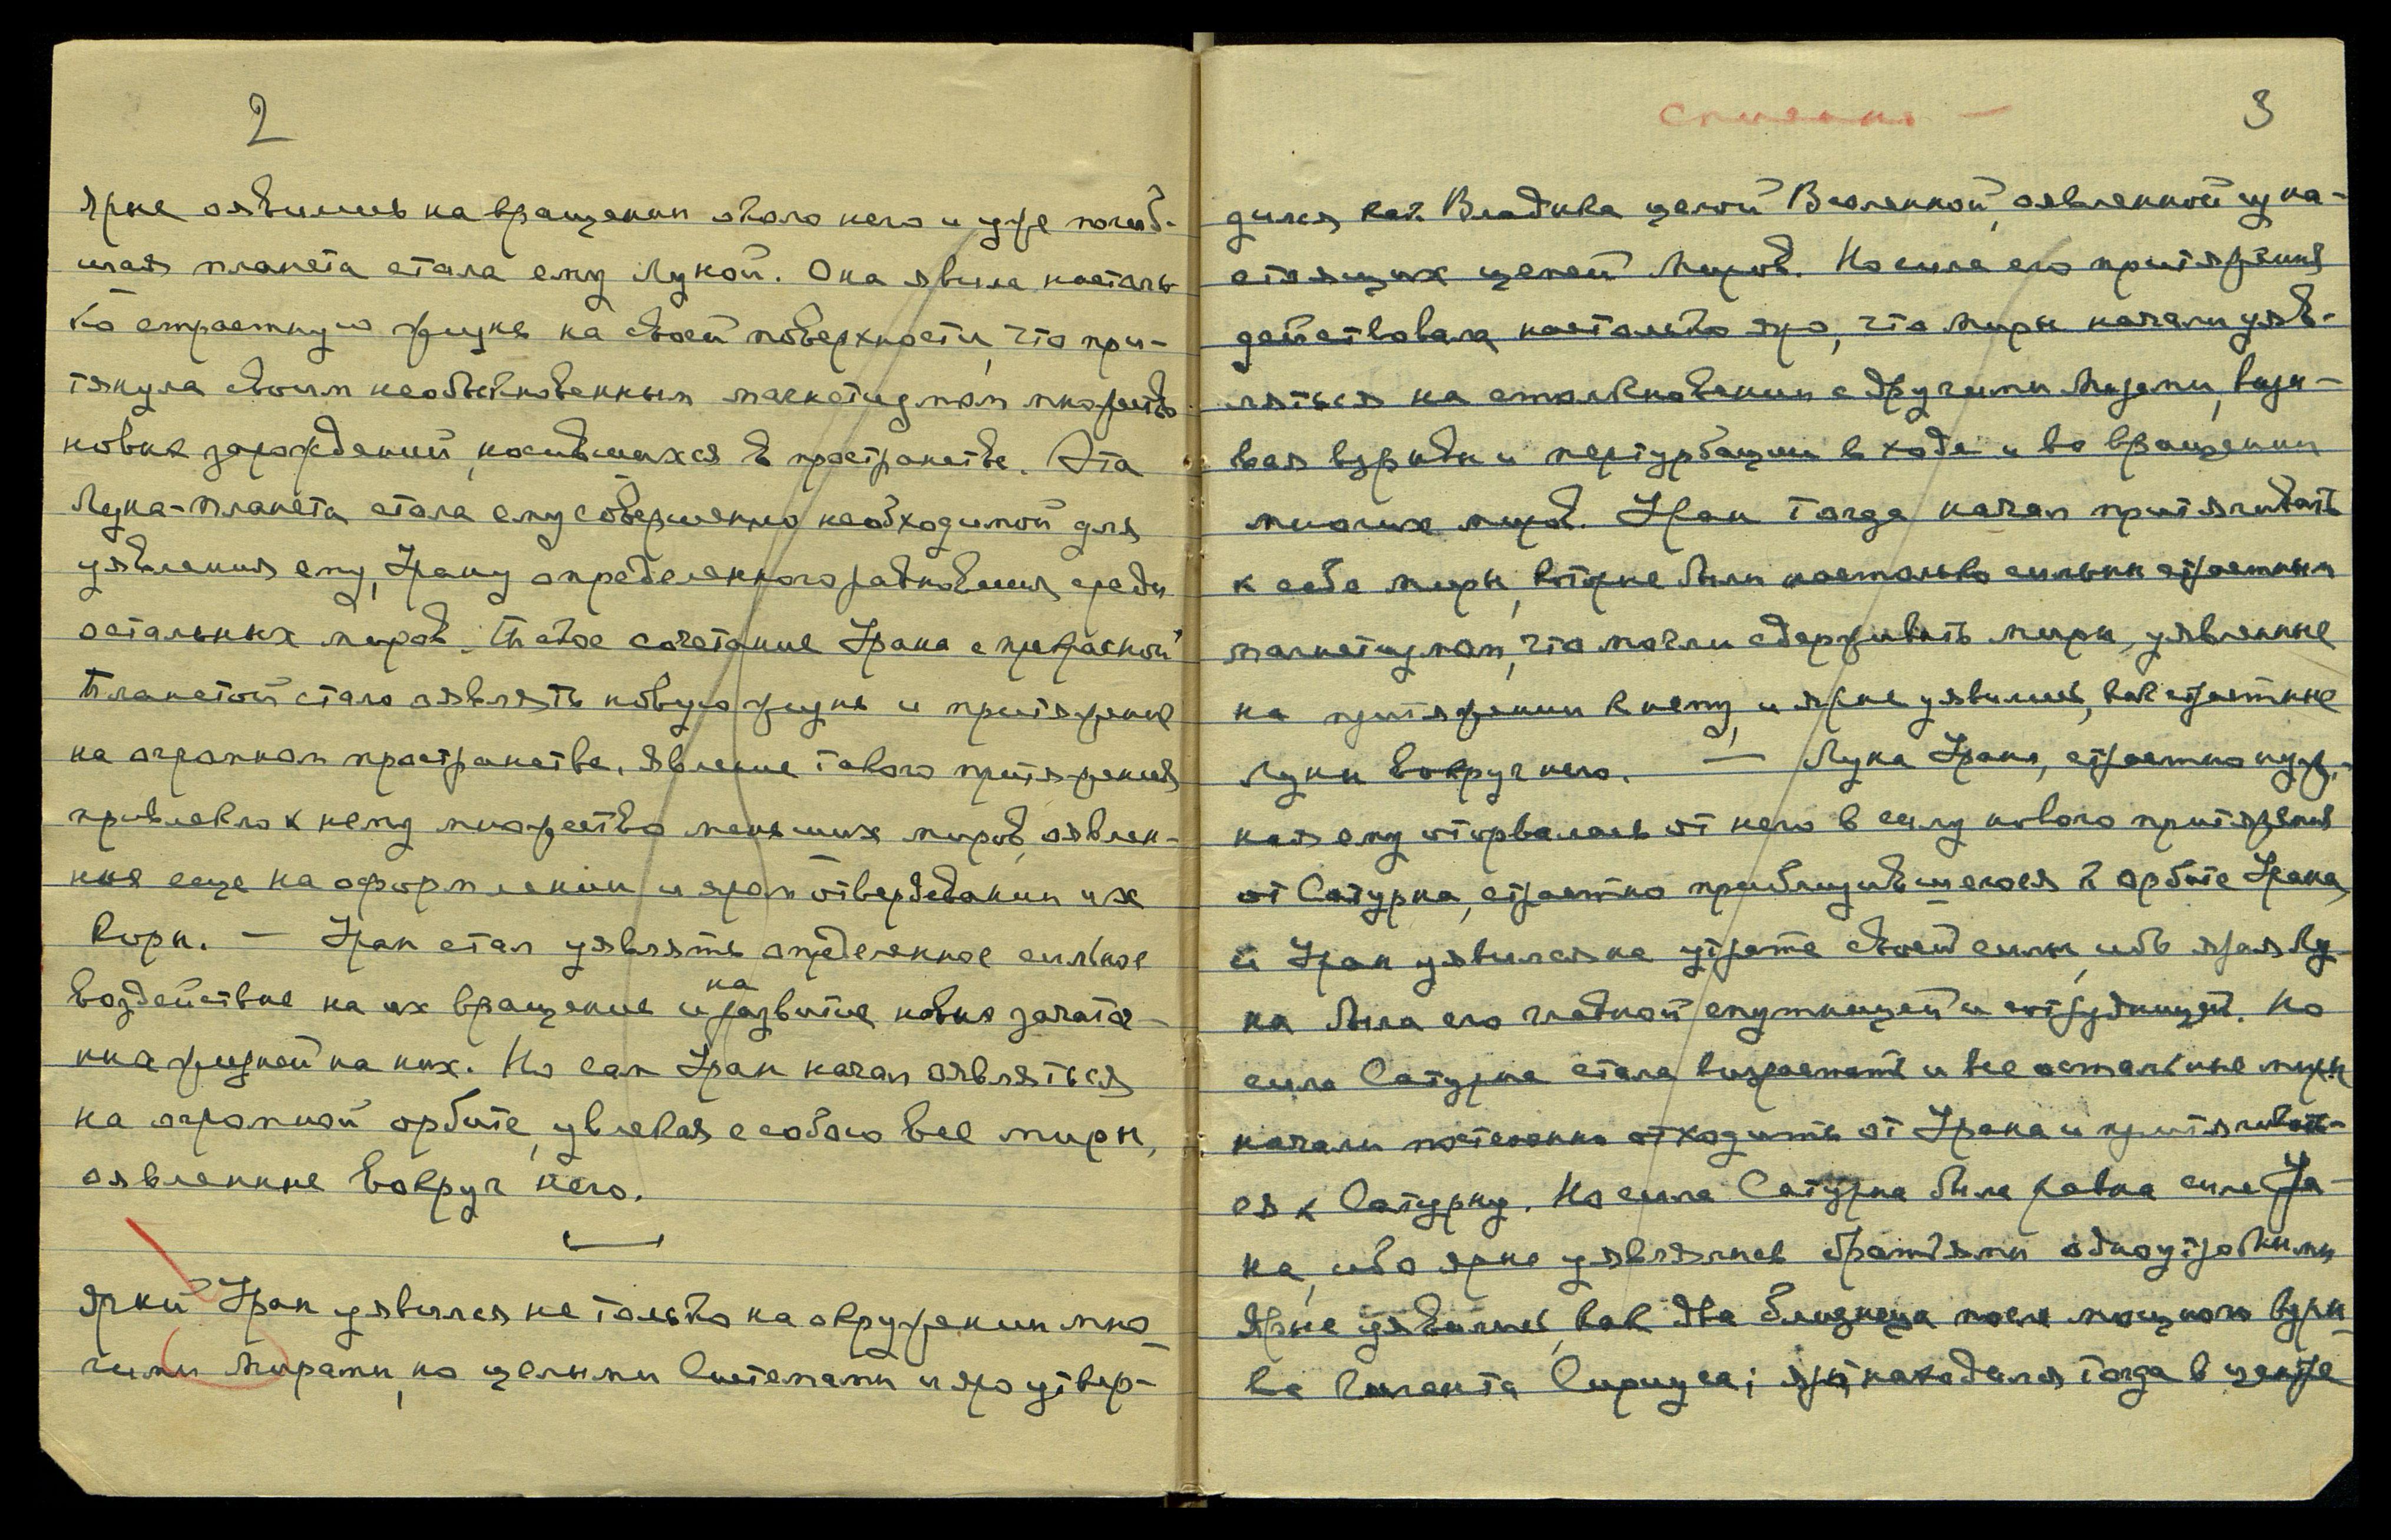 2
ярые оявились на вращении около него и уже погиб-
шая планета стала ему Луной. Она явила настоль-
ко страстную жизнь на своей поверхности, что при-
тянула своим необыкновенным магнетизмом множество
новых зарождений, носившихся в пространстве. Эта
Луна-планета стала ему совершенно необходимой для
уявления ему, Урану определенного равновесия среди
остальных миров. Такое сочетание Урана с прекрасной
Планетой стало оявлять новую жизнь и притяжение
на огромном пространстве. Явление такого притяжения
привлекло к нему множество меньших миров, оявлен-
ных еще на оформлении и яром отвердевании их
коры. — Уран стал уявлять определенное сильное
воздействие на их вращение и на развитие новых зачаточ-
ных жизней на них. Но сам Уран начал оявляться
на огромной орбите, увлекая с собою все миры,
оявленные вокруг него.
Ярый Уран уявился не только на окружении мно-
гими Мирами, но целыми Системами и яро утвер-
спешно —
3
дился как Владыка целой Вселенной, оявленной из на-
стоящих цепей Миров. Но сила его притяжения
действовала настолько яро, что миры начали уяв-
ляться на столкновении с другими Мирами, вызы-
вая взрывы и пертурбации в ходе и во вращении
многих миров. Уран тогда начал притягивать
к себе миры, которые были настолько сильны страстным
магнетизмом, что могли сдерживать миры, уявленные
на притяжении к нему, и ярые уявились, как страстные
Луны вокруг него. — Луна Урана, страстно нуж-
ная ему оторвалась от него в силу нового притяжения
от Сатурна, страстно приблизившегося к орбите Урана,
и Уран уявился на утрате своей силы, ибо ярая Лу-
на была его главной спутницей и сотрудницей. Но
сила Сатурна стала возрастать и все остальные миры
начали постепенно отходить от Урана и притягивать-
ся к Сатурну. Но сила Сатурна была равна силе Ура-
на, ибо ярые уявлялись братьями одноутробными
Ярые уявились, как два близнеца после мощного взры-
ва Гиганта Сириуса; ярый находился тогда в центре